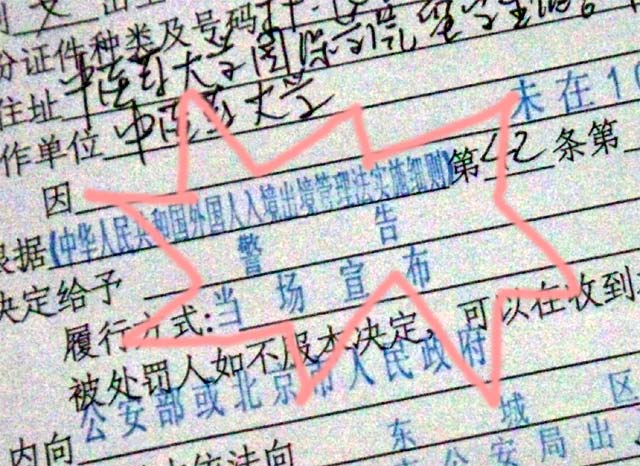 份证件种类及号码
住址 中医药大学国际学院留学生
作单位 中医药大学
未在10
因
第42条第
根据《中华人民共和国外国人入境出境管理法实施细则》
决定给予 警告
履行方式:当场宣布
被处罚人如不服本决定,可以在收到
公安部或北京市人民政府
东城区
内向
依法向
公安局出